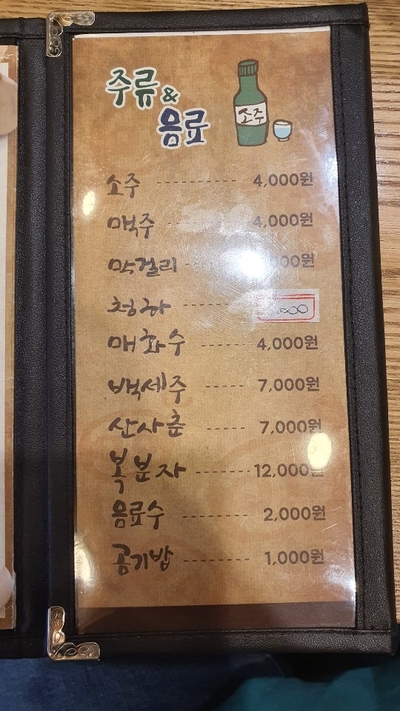 주류 &
음료
소주
소주 ---------- 4,000원
맥주 ---------- 4,000원
막걸리
청하
매화수 -------- 4,000원
백세주 -------- 7,000원
산사춘 -------- 7,000원
복분자 -------- 12,000원
음료수 -------- 2,000원
공기밥 -------- 1,000원